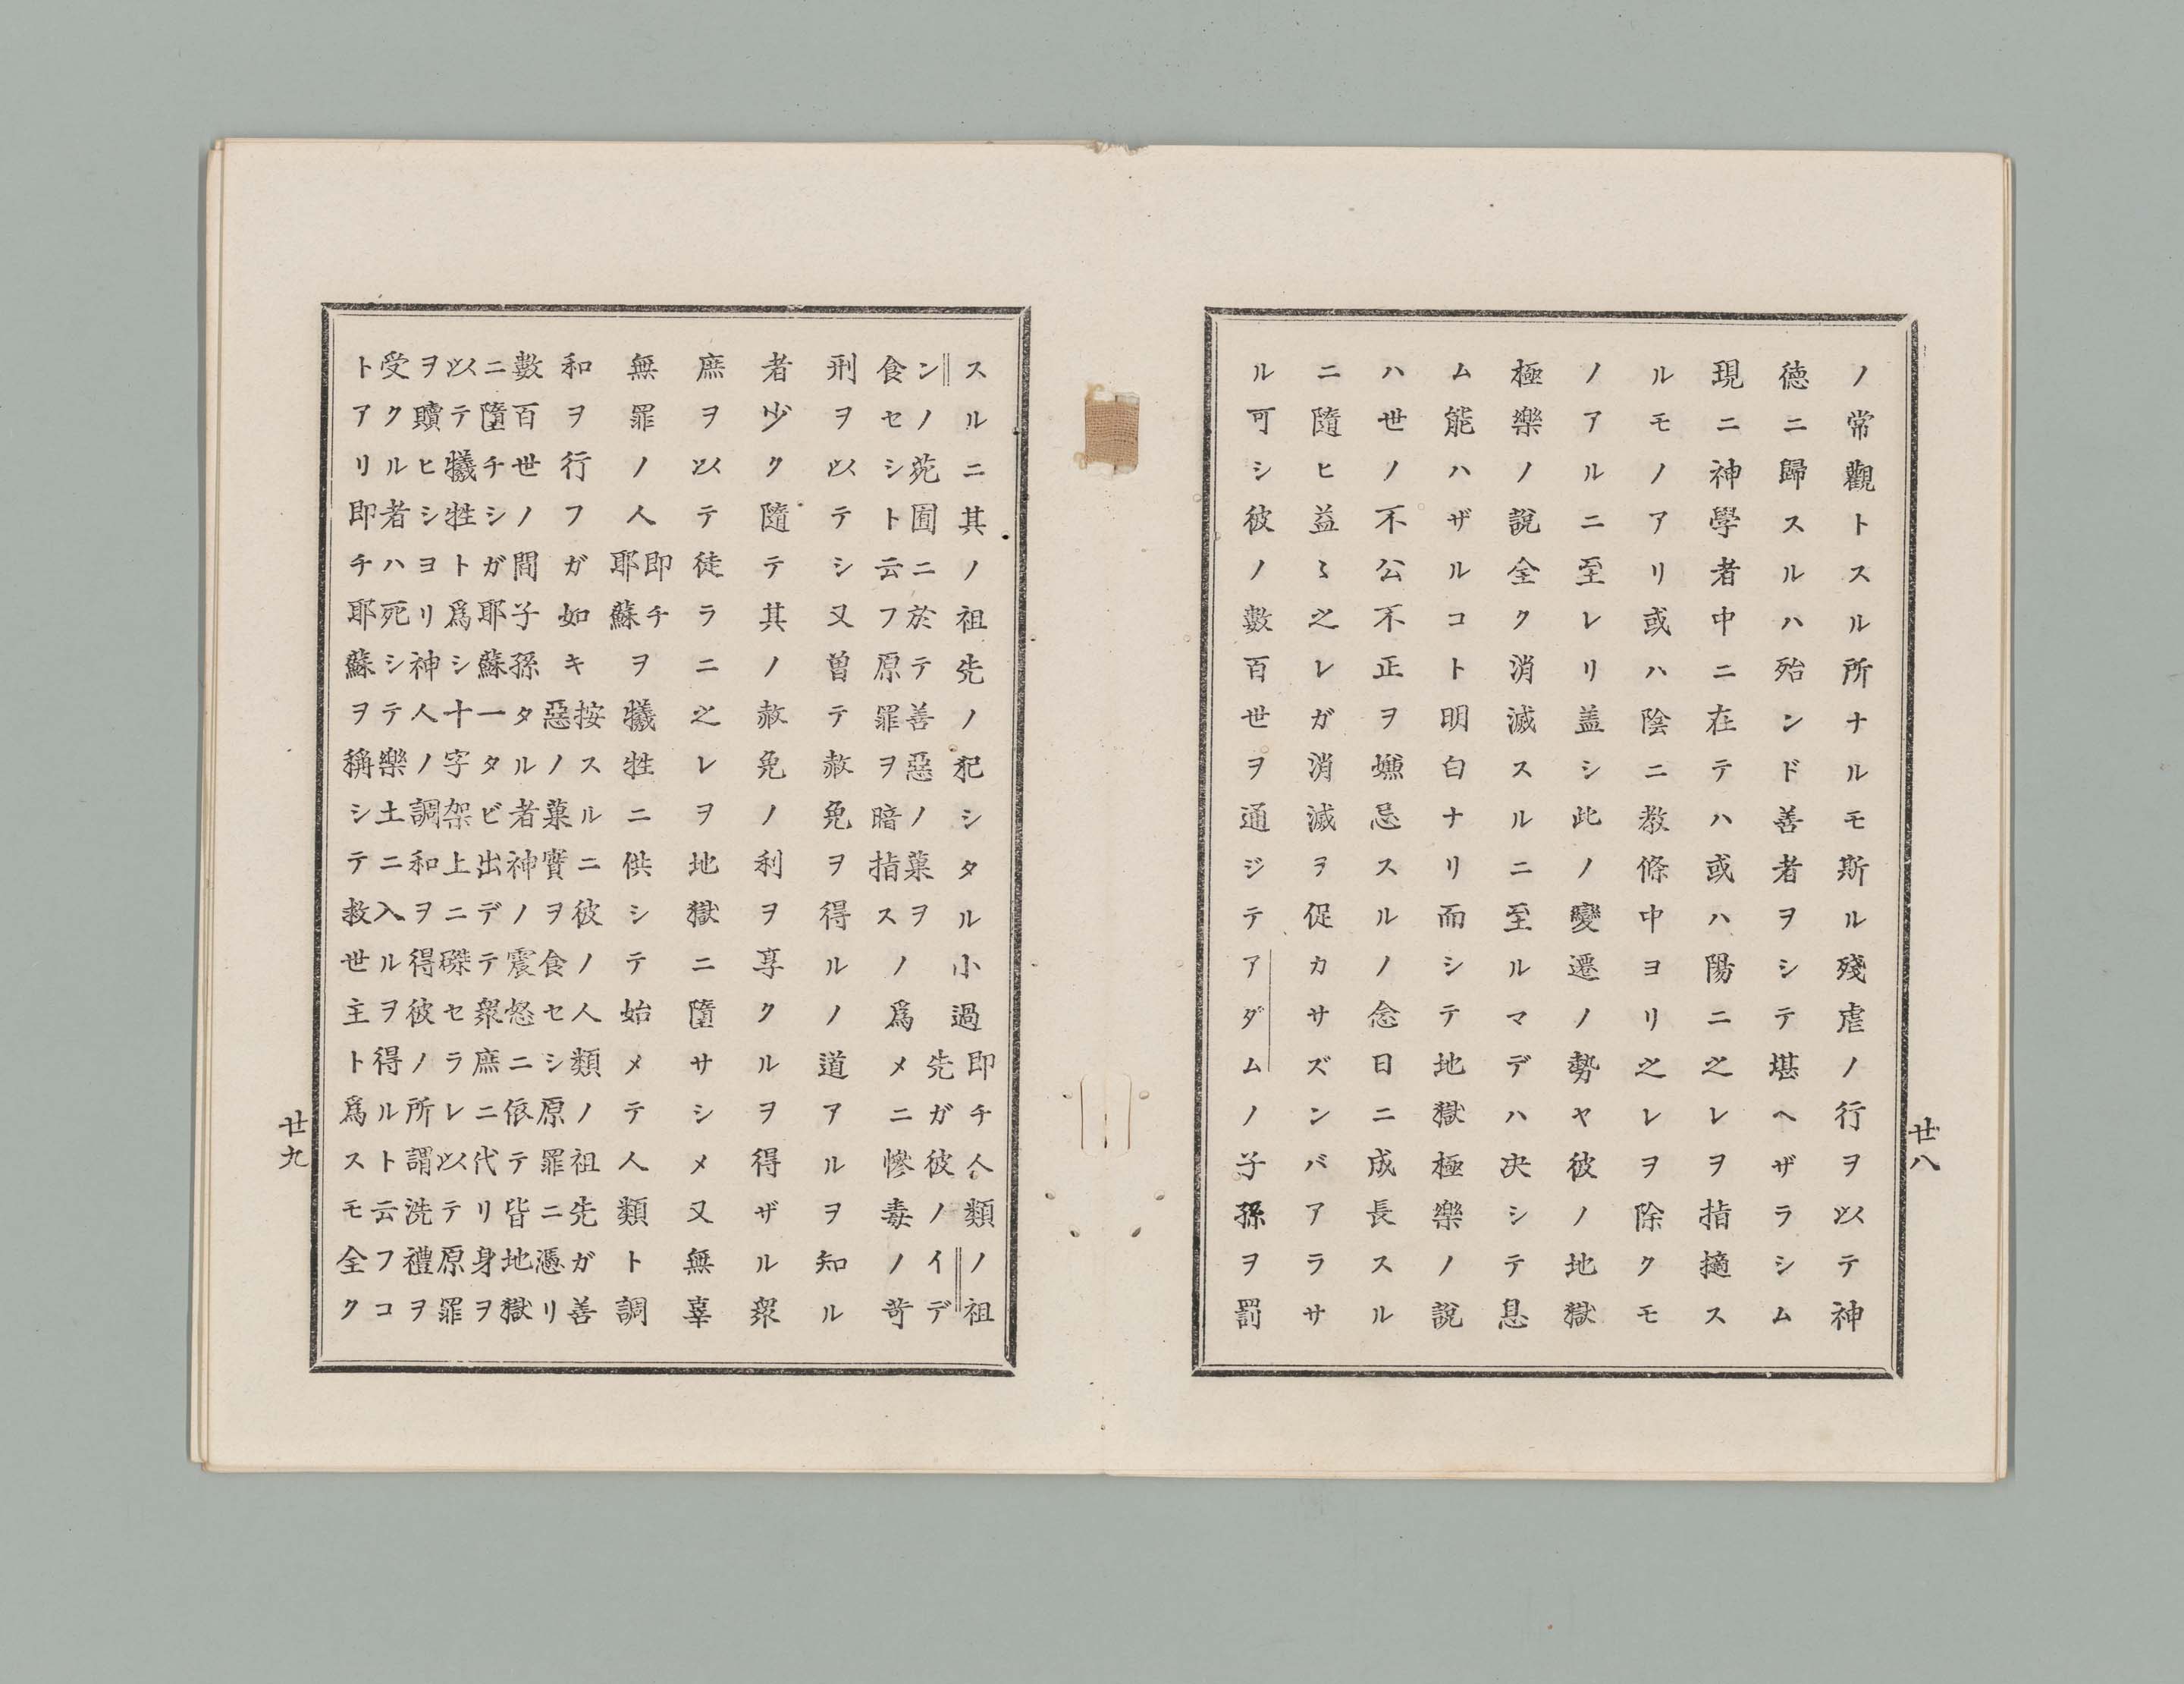 ノ常觀トスル所ナルモ斯ル殘虐ノ行ヲ以テ神
徳ニ歸スルハ殆ンド善者ヲシテ堪ヘザラシム
現ニ神學者中ニ在テハ或ハ陽ニ之レヲ指擿ス
ルモノアリ或ハ陰ニ教條中ヨリ之レヲ除クモ
ノアルニ至レリ蓋シ此ノ變遷ノ勢ヤ彼ノ地獄
極樂ノ說全ク消滅スルニ至ルマデハ决シテ息
ム能ハザルコト明白ナリ而シテ地獄極樂ノ說
ハ世ノ不公不正ヲ嫌忌スルノ念日ニ成長スル
ニ隨ヒ益〻之レガ消滅ヲ促カサズンバアラサ
ル可シ彼ノ數百世ヲ通ジテアダムノ子孫ヲ罰
廿八
スルニ其ノ祖先ノ犯シタル小過即チ人類ノ祖
先ガ彼ノイデ
ンノ苑囿ニ於テ善惡ノ菓ヲ
食セシト云フ原罪ヲ暗指スノ爲メニ慘毒ノ苛
刑ヲ以テシ又曽テ赦免ヲ得ルノ道アルヲ知ル
者少ク隨テ其ノ赦免ノ利ヲ享クルヲ得ザル衆
庶ヲ以テ徒ラニ之レヲ地獄ニ墮サシメ又無辜
無罪ノ人即チ耶蘇ヲ犠牲ニ供シテ始メテ人類ト調
和ヲ行フガ如キ按スルニ彼ノ人類ノ祖先ガ善
惡ノ菓實ヲ食セシ原罪ニ憑リ
數百世ノ間子孫タル者神ノ震怒ニ依テ皆地獄
ニ墮チシガ耶蘇一タビ出デテ衆庶ニ代リ身ヲ
以テ犠牲ト爲シ十字架上ニ磔セラレ以テ原罪
ヲ贖ヒシヨリ神人ノ調和ヲ得彼ノ所謂洗禮ヲ
受クル者ハ死シテ樂土ニ入ルヲ得ルト云フコ
トアリ即チ耶蘇ヲ稱シテ救世主ト爲スモ全ク
廿九